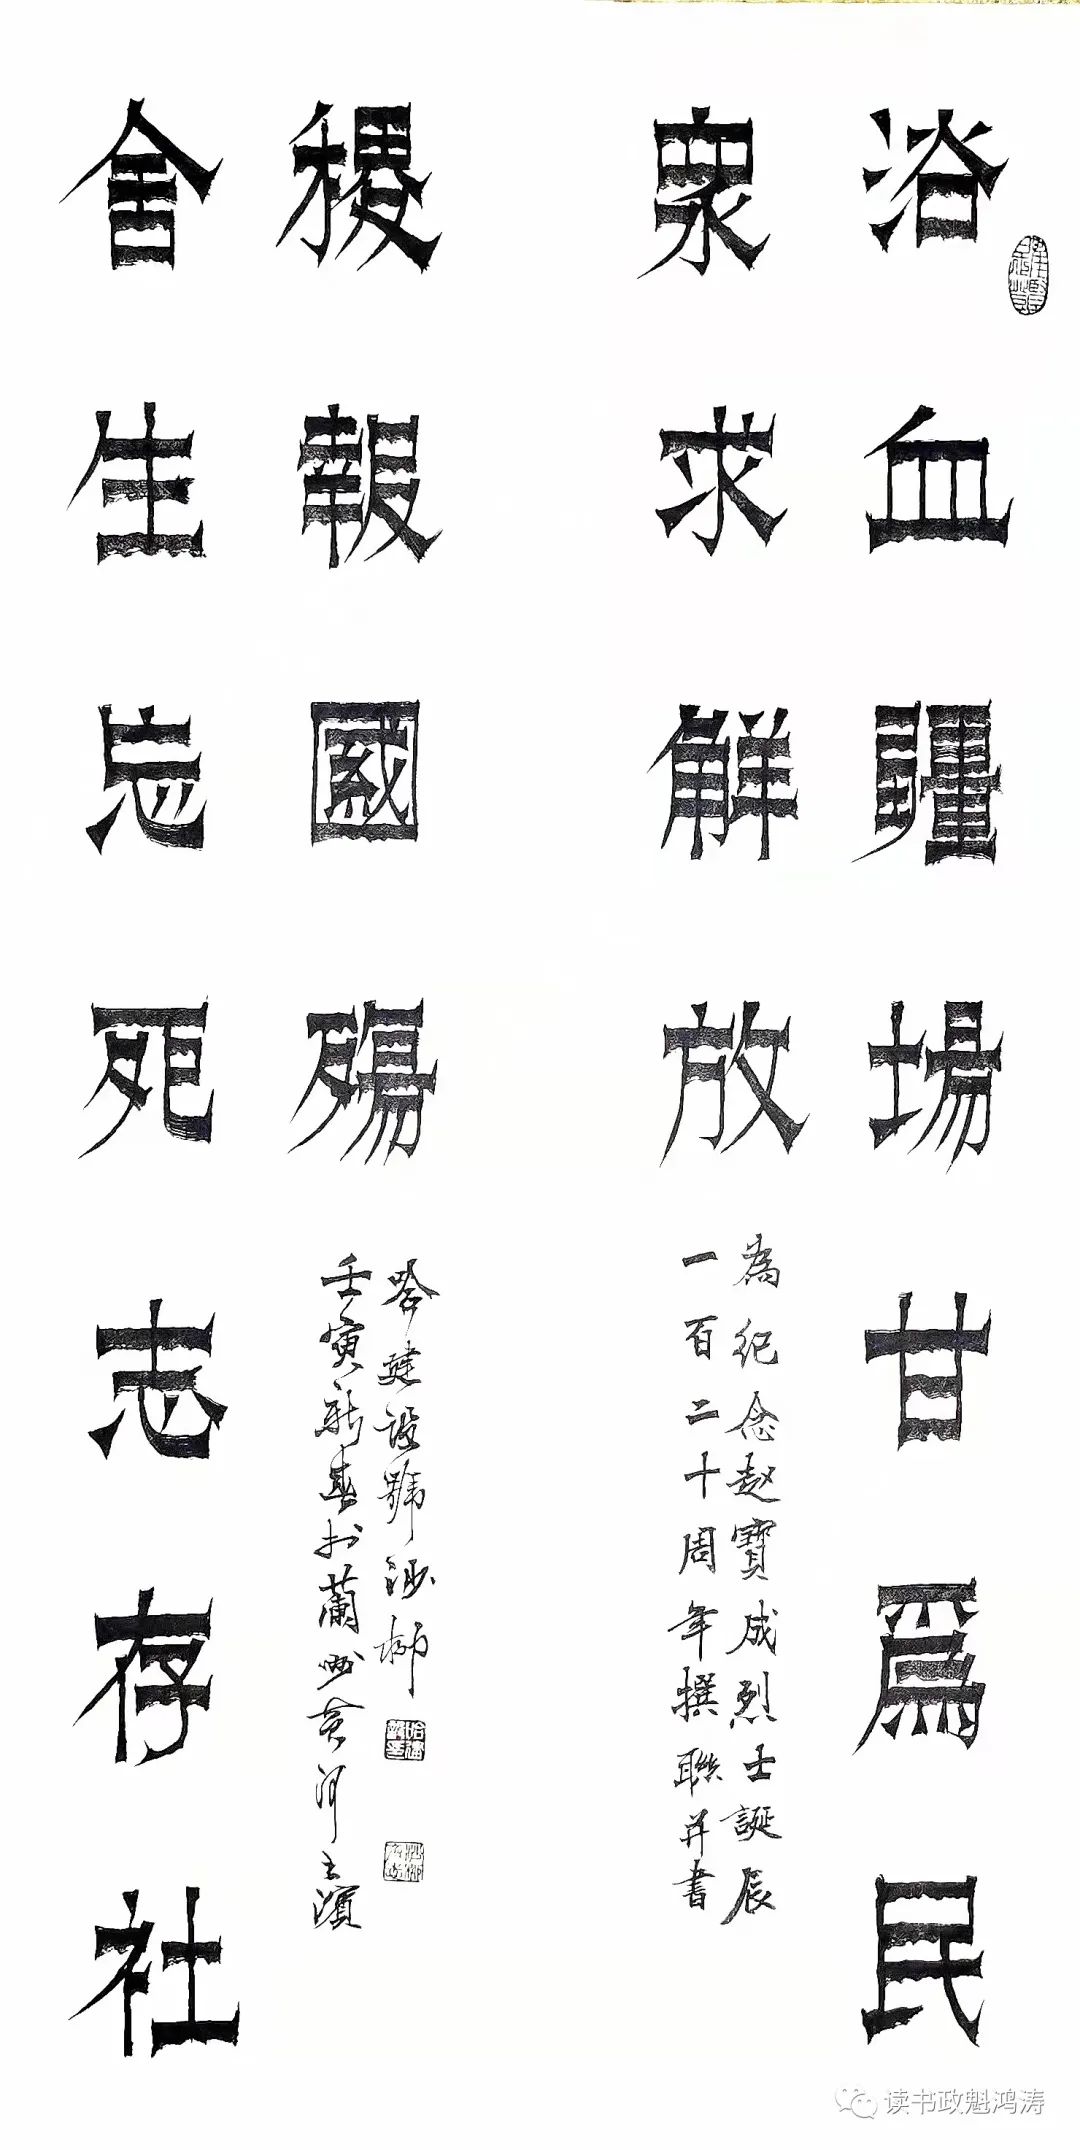 浴血疆場甘爲民
衆求解放
為纪念赵寶成烈士誕辰
一百二十周年撰聯并書
舍生忘死志存社
稷報國殤
哈建设號沙柳
壬寅新春於蘭州黄河之濱
读书政魁鸿涛